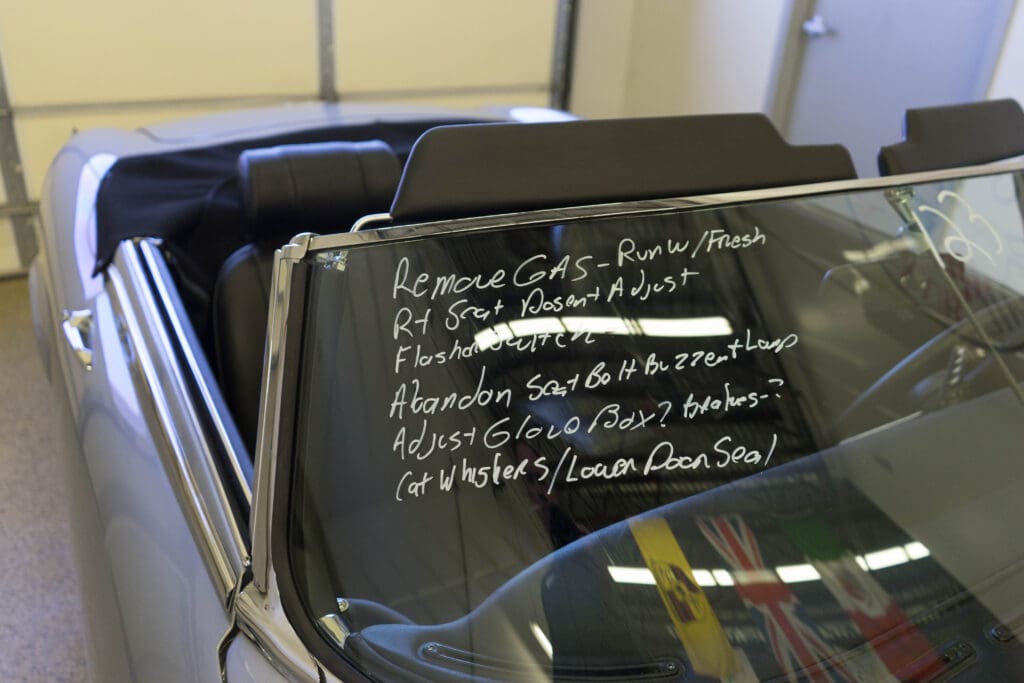 Remove GAS - Run w/Fresh
Rt Seat Dosent Adjust
Flasher Switch
Abandon Seat Bolt Buzzer + Lamp
Adjust Glove Box? Brakes-?
Cat Whiskers/Lower Door Seal
23